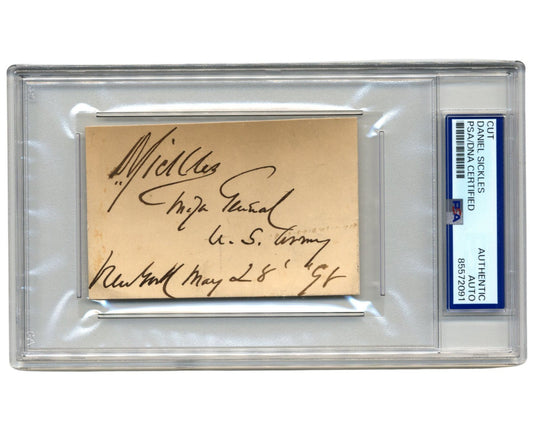 DSickles
Maj. General
U. S. Army
New York May 28' '98
CUT
DANIEL SICKLES
PSA/DNA CERTIFIED
PSA
AUTHENTIC
AUTO
85572091